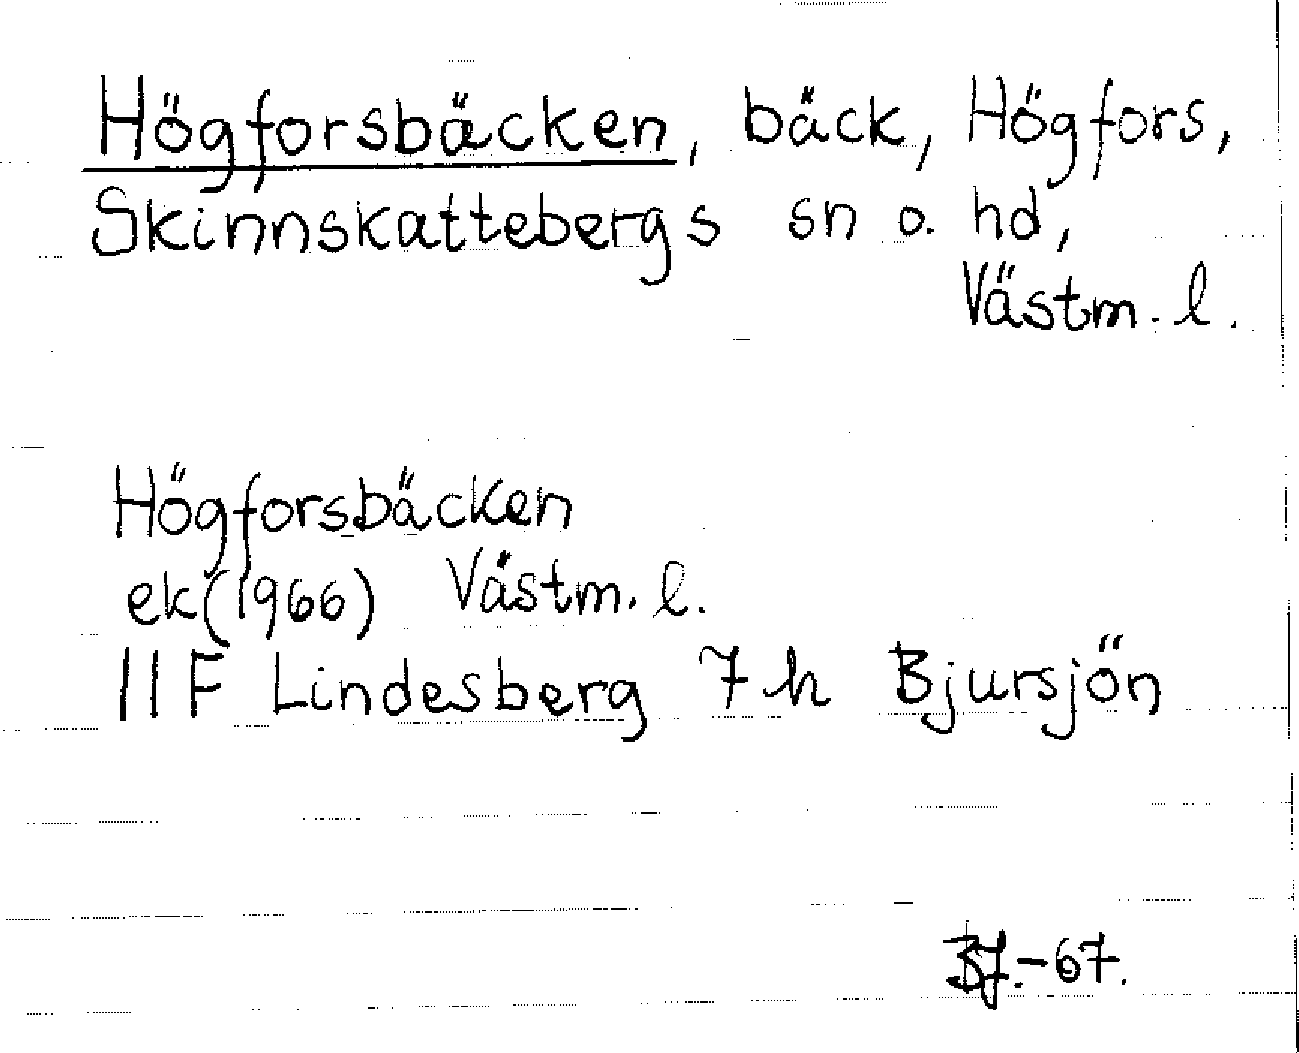 Högforsbäcken, bäck, Högfors,
Skinnskattebergs sn o. hd,
Västm. l.
Högforsbäcken
ek(1966) Västm. l.
11F Lindesberg 7h Bjursjön
BJ.-67.